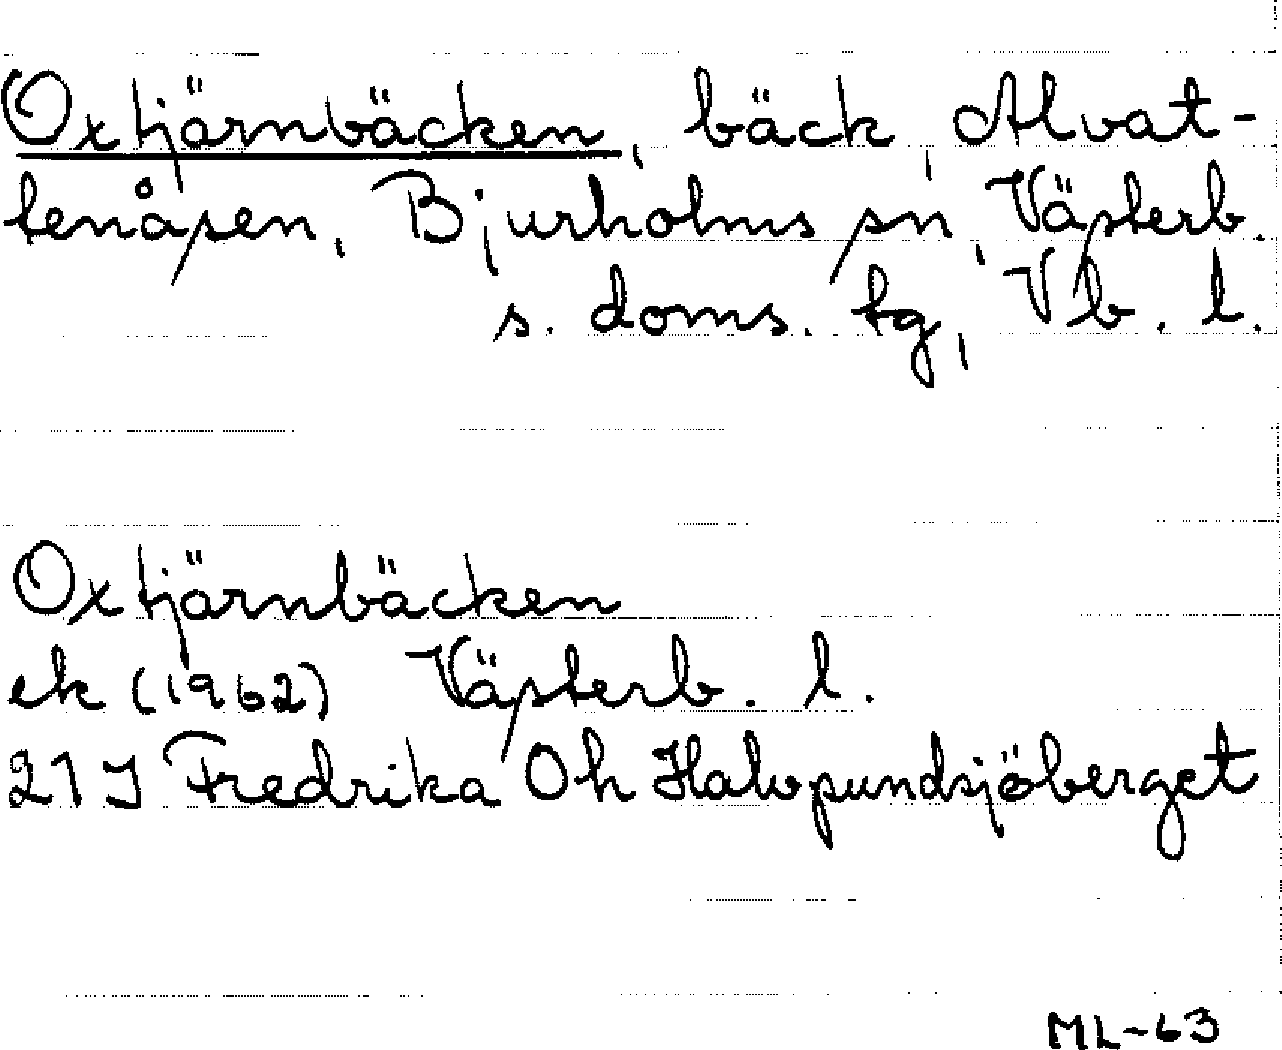 Oxtjärnbäcken, bäck, Alvat-
tenåsen, Bjurholms sn, Västerb.
s. doms. tg, Vb. l.
Oxtjärnbäcken
ek (1962) Västerb. l.
21 J Fredrika Oh Halvpundsjöberget
ML-63